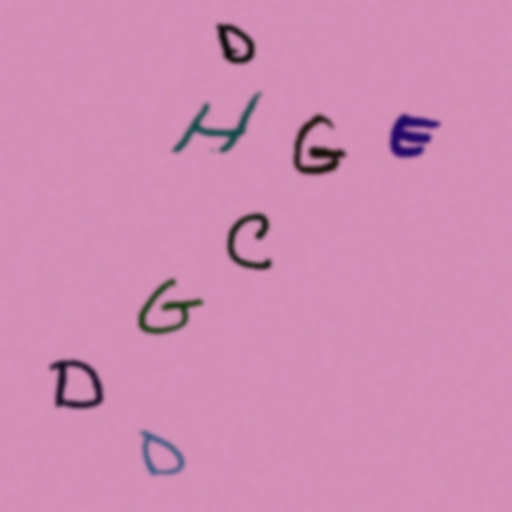 D
H G E
C
G
D
D